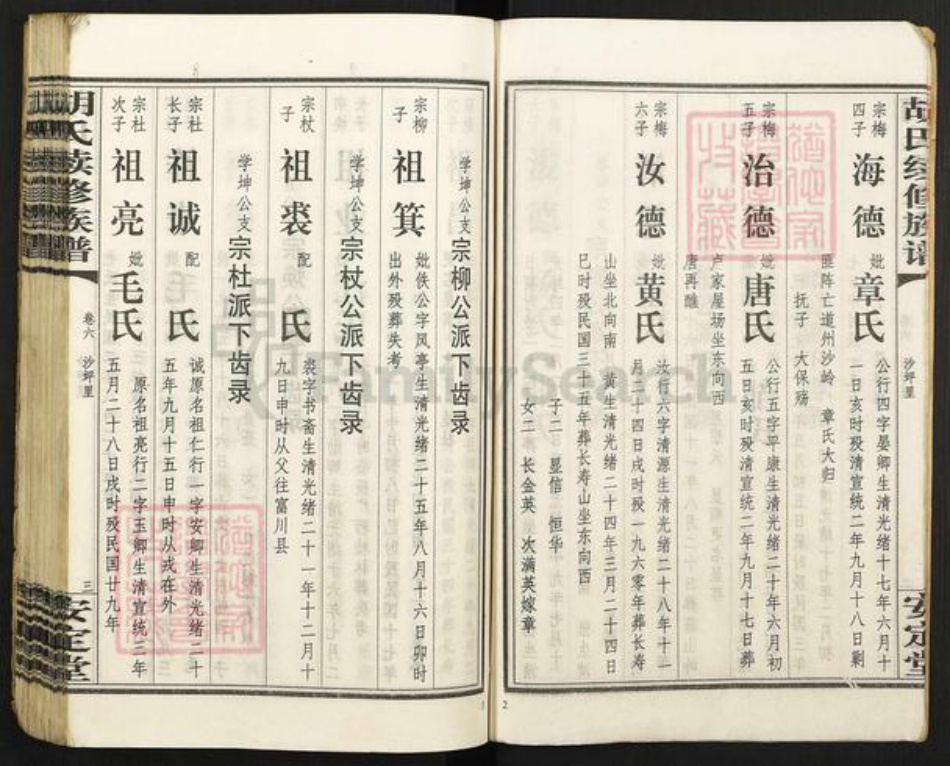 胡氏续修族谱
沙坪里
安定堂
宗梅四子
海德
妣章氏
公行四字晏卿生清光绪十七年六月十
一日亥时殁清宣统二年九月十八日剿
匪阵亡道州沙岭 章氏大归
抚子 大保殇
宗梅五子
治德
妣唐氏
公行五字平康生清光绪二十年六月初
五日亥时殁清宣统二年九月十七日葬
卢家屋场坐东向西
唐再醮
宗梅六子
汝德
妣黄氏
汝行六字清源生清光绪二十八年十一
月二十四日戌时殁一九六零年葬长寿
山坐北向南 黄生清光绪二十四年三月二十四日
巳时殁民国三十五年葬长寿山坐东向西
子二 显信 恒华
女二 长金英 次满英嫁章
2
学坤公支宗柳公派下齿录
宗柳子
祖箕
妣佚公字风亭生清光绪二十五年八月十六日卯时
出外殁葬失考
学坤公支宗杖公派下齿录
宗杖子
祖裘
配 氏
裘字书斋生清光绪二十一年十二月十
九日申时从父往富川县
学坤公支宗杜派下齿录
宗杜长子
祖诚
配 氏
诚原名祖仁行一字安卿生清光绪二十
五年九月十五日申时从戎在外
宗杜次子
祖亮
妣毛氏
原名祖亮行二字玉卿生清宣统三年
五月二十八日戌时殁民国廿九年
胡氏续修族谱
卷六 沙坪里
三
安定堂
FamilySearch